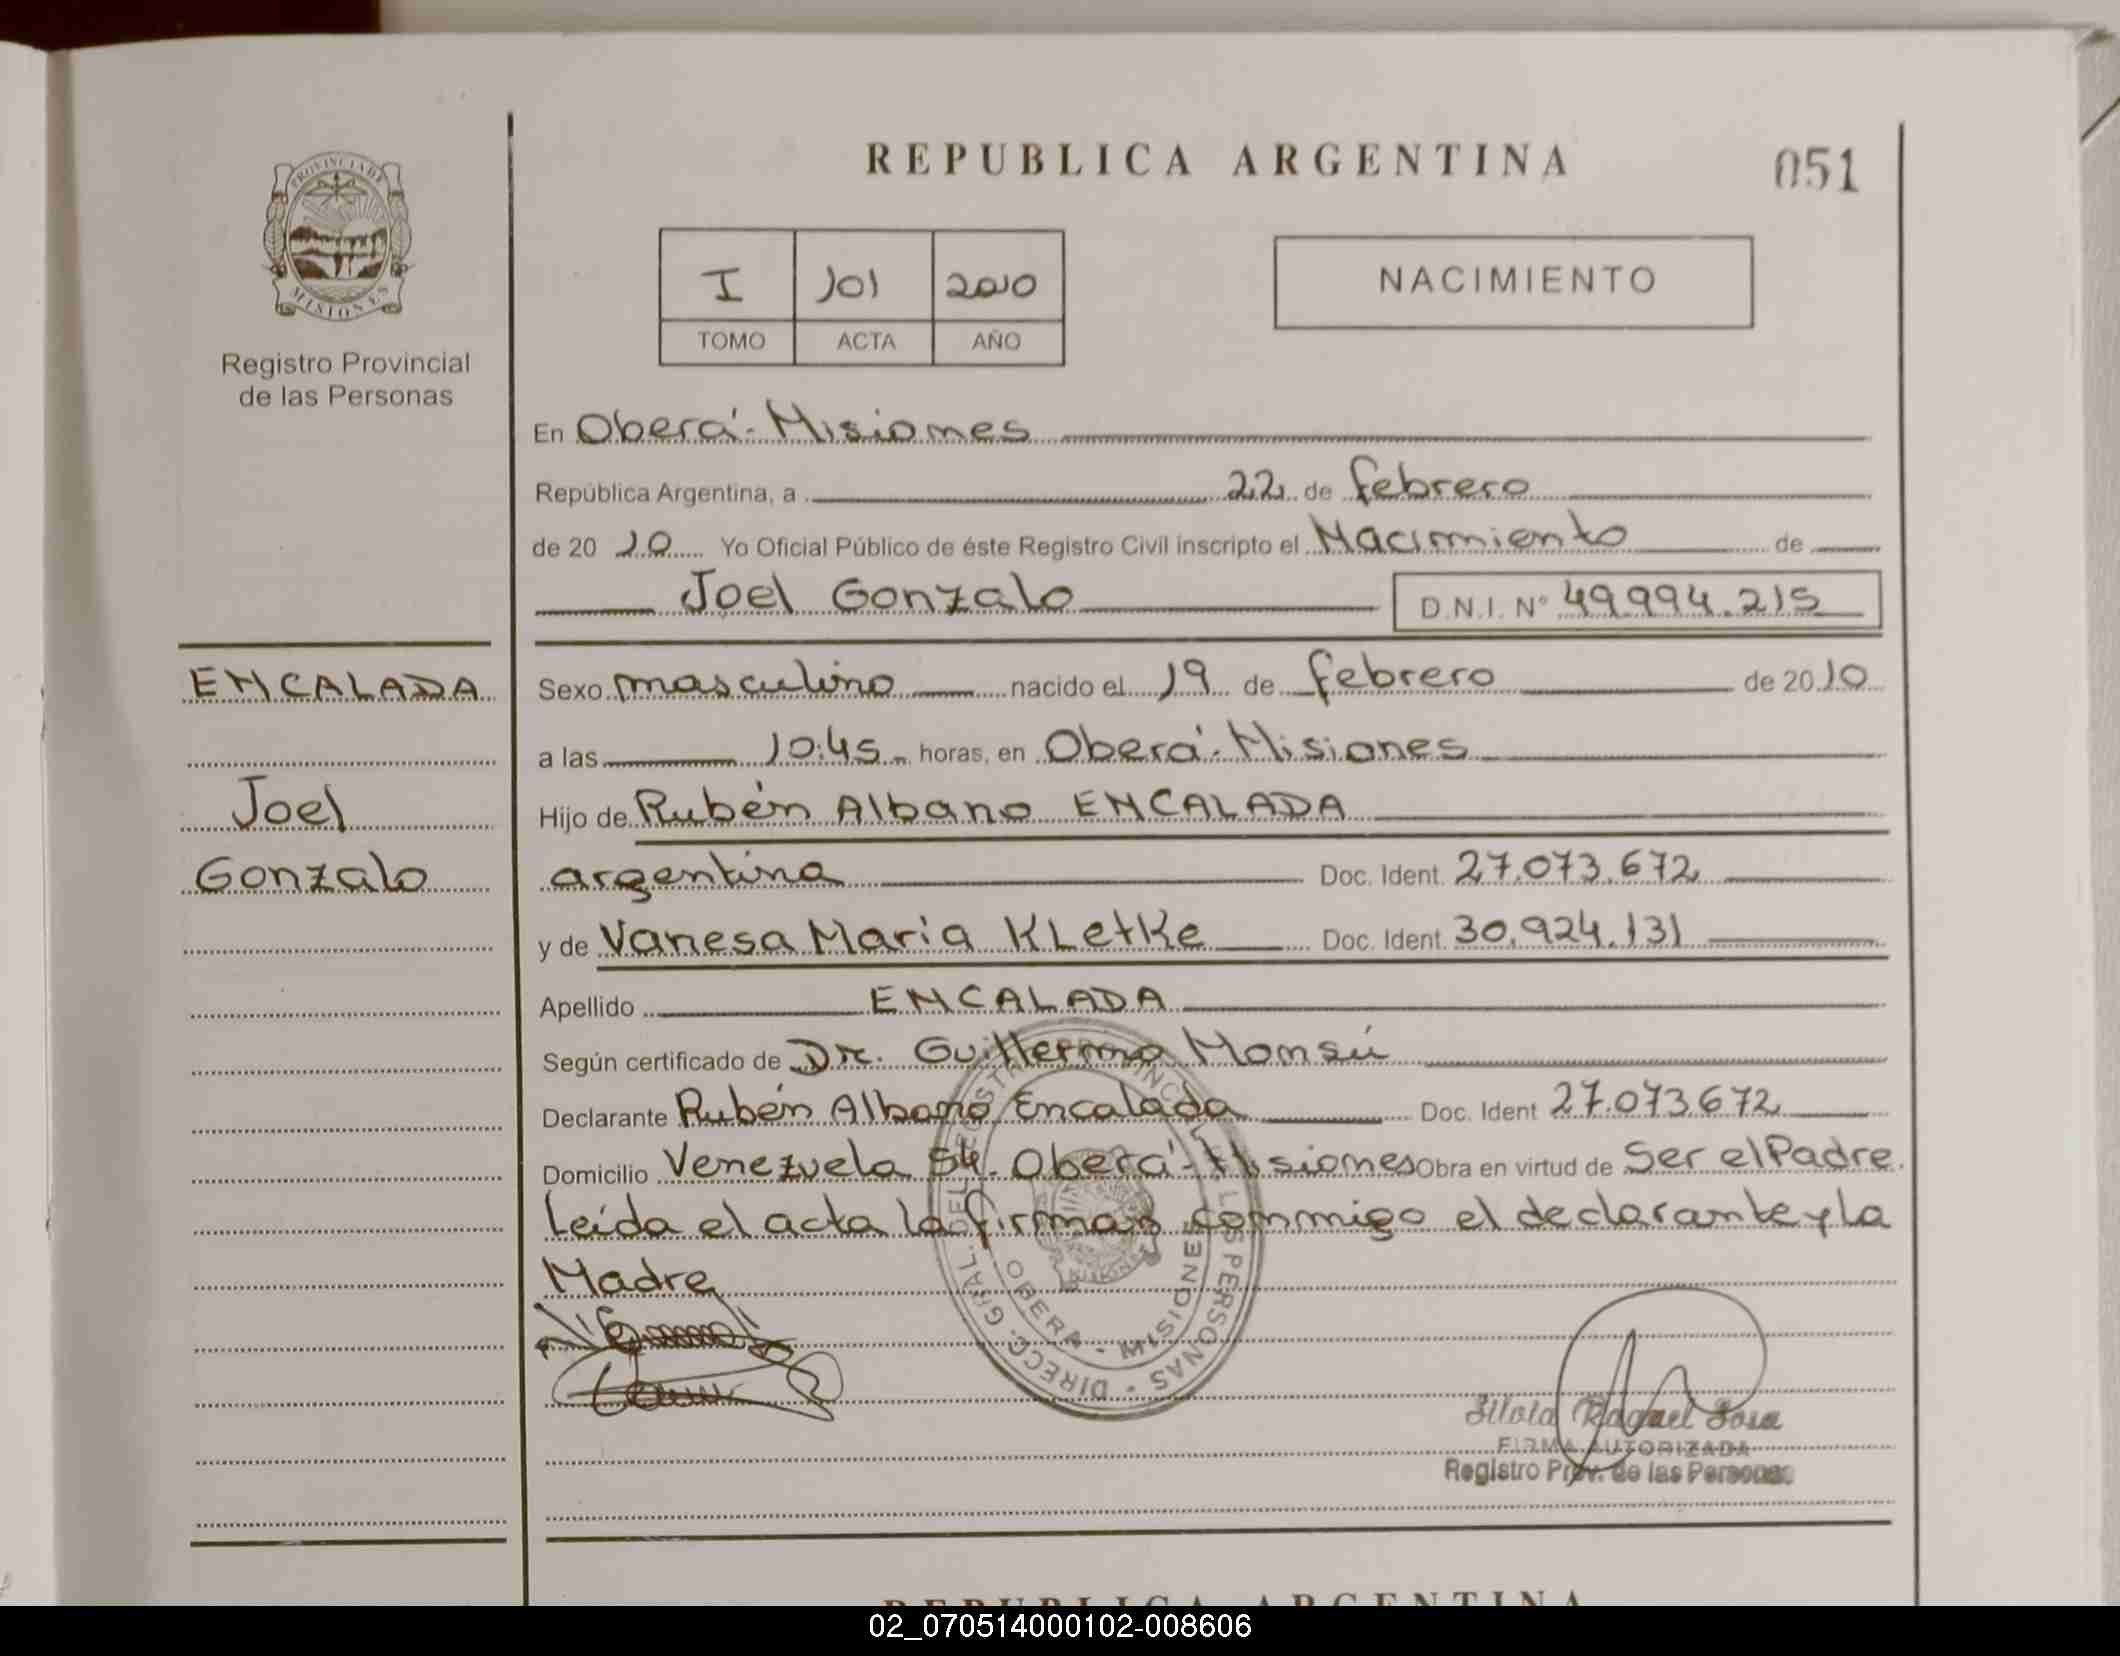 REPUBLICA ARGENTINA
051
PROVINCIA DE MISIONES
Registro Provincial
de las Personas
I 101 2010
TOMO ACTA AÑO
NACIMIENTO
En Oberá - Misiones
República Argentina, a 22 de febrero
de 20 10 Yo Oficial Público de éste Registro Civil inscripto el Nacimiento de
Joel Gonzalo D.N.I. N° 49.994.215
ENCALADA
Joel
Gonzalo
Sexo masculino nacido el 19 de febrero de 20 10
a las 10:45 horas, en Oberá - Misiones
Hijo de Rubén Albano ENCALADA
argentina Doc. Ident. 27.073.672
y de Vanesa Maria KLetke Doc. Ident. 30.924.131
Apellido ENCALADA
Según certificado de Dr. Guillermo Monsú
Declarante Rubén Albano Encalada Doc. Ident 27.073672
Domicilio Venezuela Oberá - Misiones Obra en virtud de Ser el Padre.
Leída el acta la firman conmigo el declarante y la
Madre
DIRECC. GRAL. DEL REGISTRO PROVINCIAL DE LAS PERSONAS
OBERA - MISIONES
Silvia Raquel Sosa
FIRMA AUTORIZADA
Registro Prov. de las Personas
REPUBLICA ARGENTINA
02_070514000102-008606